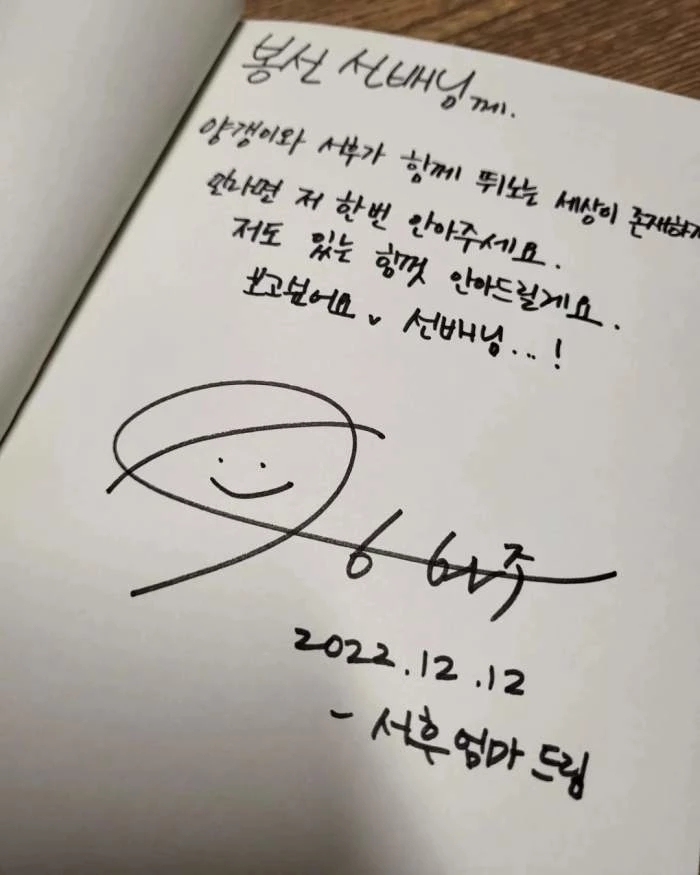 봉선 선배님께.
양갱이와 서후가 함께 뛰노는 세상이 존재하지
만나면 저 한번 안아주세요.
저도 있는 힘껏 안아드릴게요.
보고싶어요, 선배님...!
2022.12.12
- 서후엄마 드림